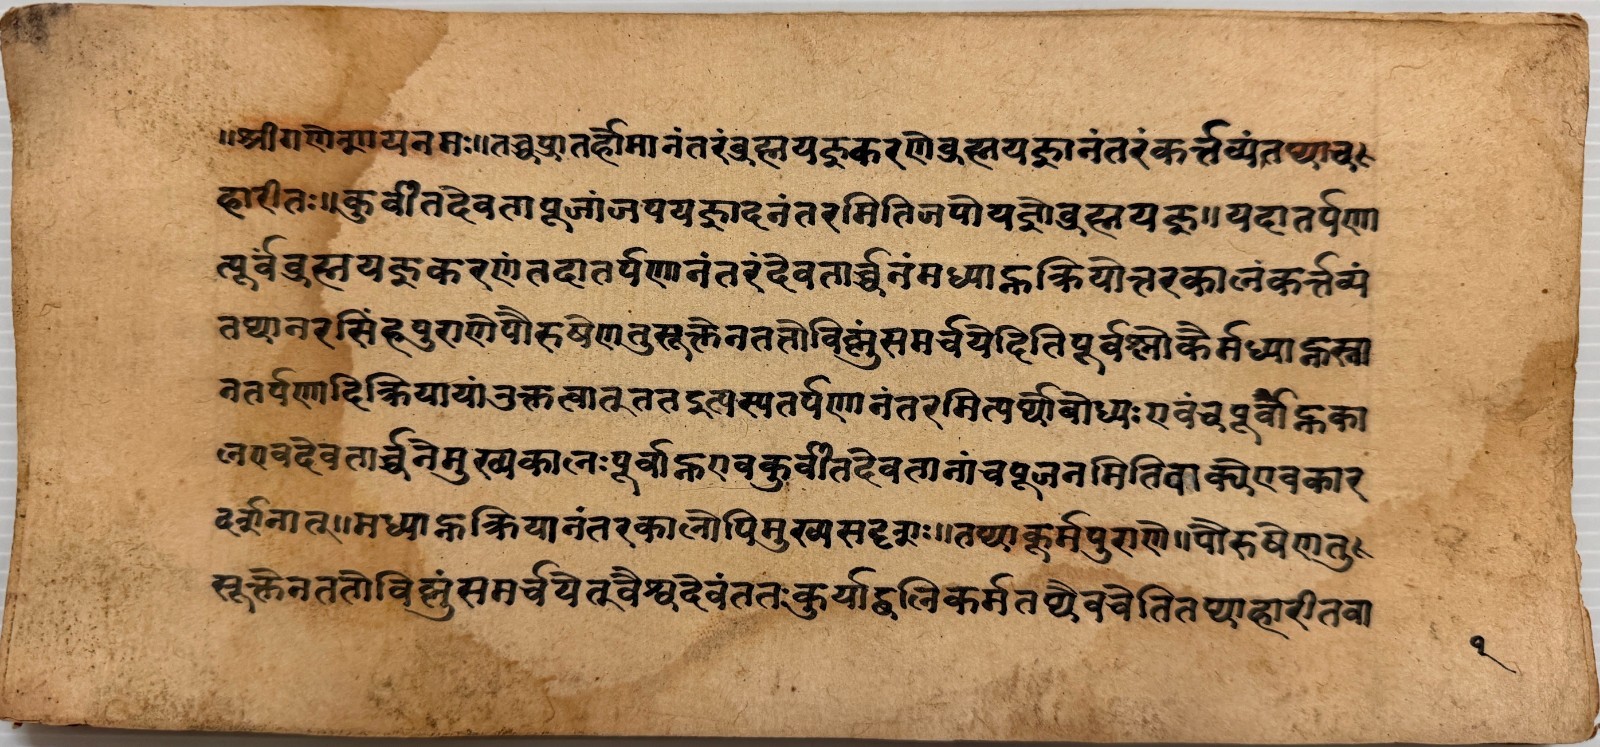 ॥श्रीगणेशायनमः॥तच्चप्रातर्होमानंतरंब्रह्मयज्ञकरणेब्रह्मयज्ञानंतरंकर्त्तव्यंतथाच
हारीतः॥कुर्वीतदेवतापूजांजपयज्ञादनंतरमितिजपोयज्ञोब्रह्मयज्ञ॥यदातर्पणा
त्पूर्वंब्रह्मयज्ञकरणंतदातर्पणानंतरंदेवतार्च्चनंमध्याह्नक्रियोत्तरकालंकर्त्तव्यं
तथानरसिंहपुराणेपौरुषेणतुसूक्तेनततोविष्णुंसमर्चयेदितिपूर्वश्लोकैर्मध्याह्नस्ना
नतर्पणादिक्रियायांउक्तत्वात्ततइत्यस्यतर्पणानंतरमित्यर्थोबोध्यःएवंचपूर्वाह्नका
लेएवदेवतार्च्चनेमुख्यकालःपूर्वाह्नएवकुर्वीतदेवतानांचपूजनमितिवाक्येएवकार
दर्शनात्॥मध्याह्नक्रियानंतरकालोपिमुख्यसदृशः॥तथाकूर्मपुराणे॥पौरुषेणतु
सूक्तेनततोविष्णुंसमर्चयेत्वैश्वदेवंततःकुर्याद्बलिकर्मतथैवचेतितथाहारीतवा
१